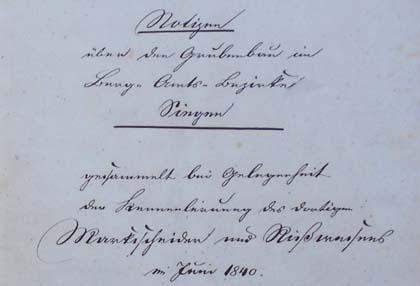 Notizen
über den Grubenbau im
Berg-Amts-Bezirke
Siegen
gesammelt bei Gelegenheit
der Kennenlernung des dortigen
Markscheider und Rißwesens
im Juni 1840.